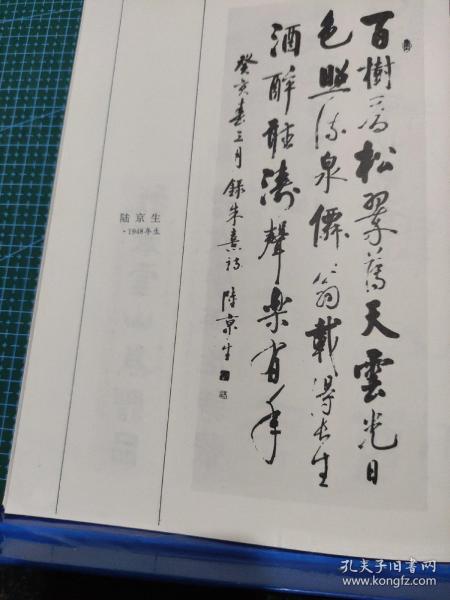 百樹松翠天雲光日
色照流泉僊翁載得長生
酒醉聽濤聲樂年
癸亥春三月 錄朱熹詩 陸京生
陆京生
·1948年生
孔夫子旧书网
www.kongfz.com